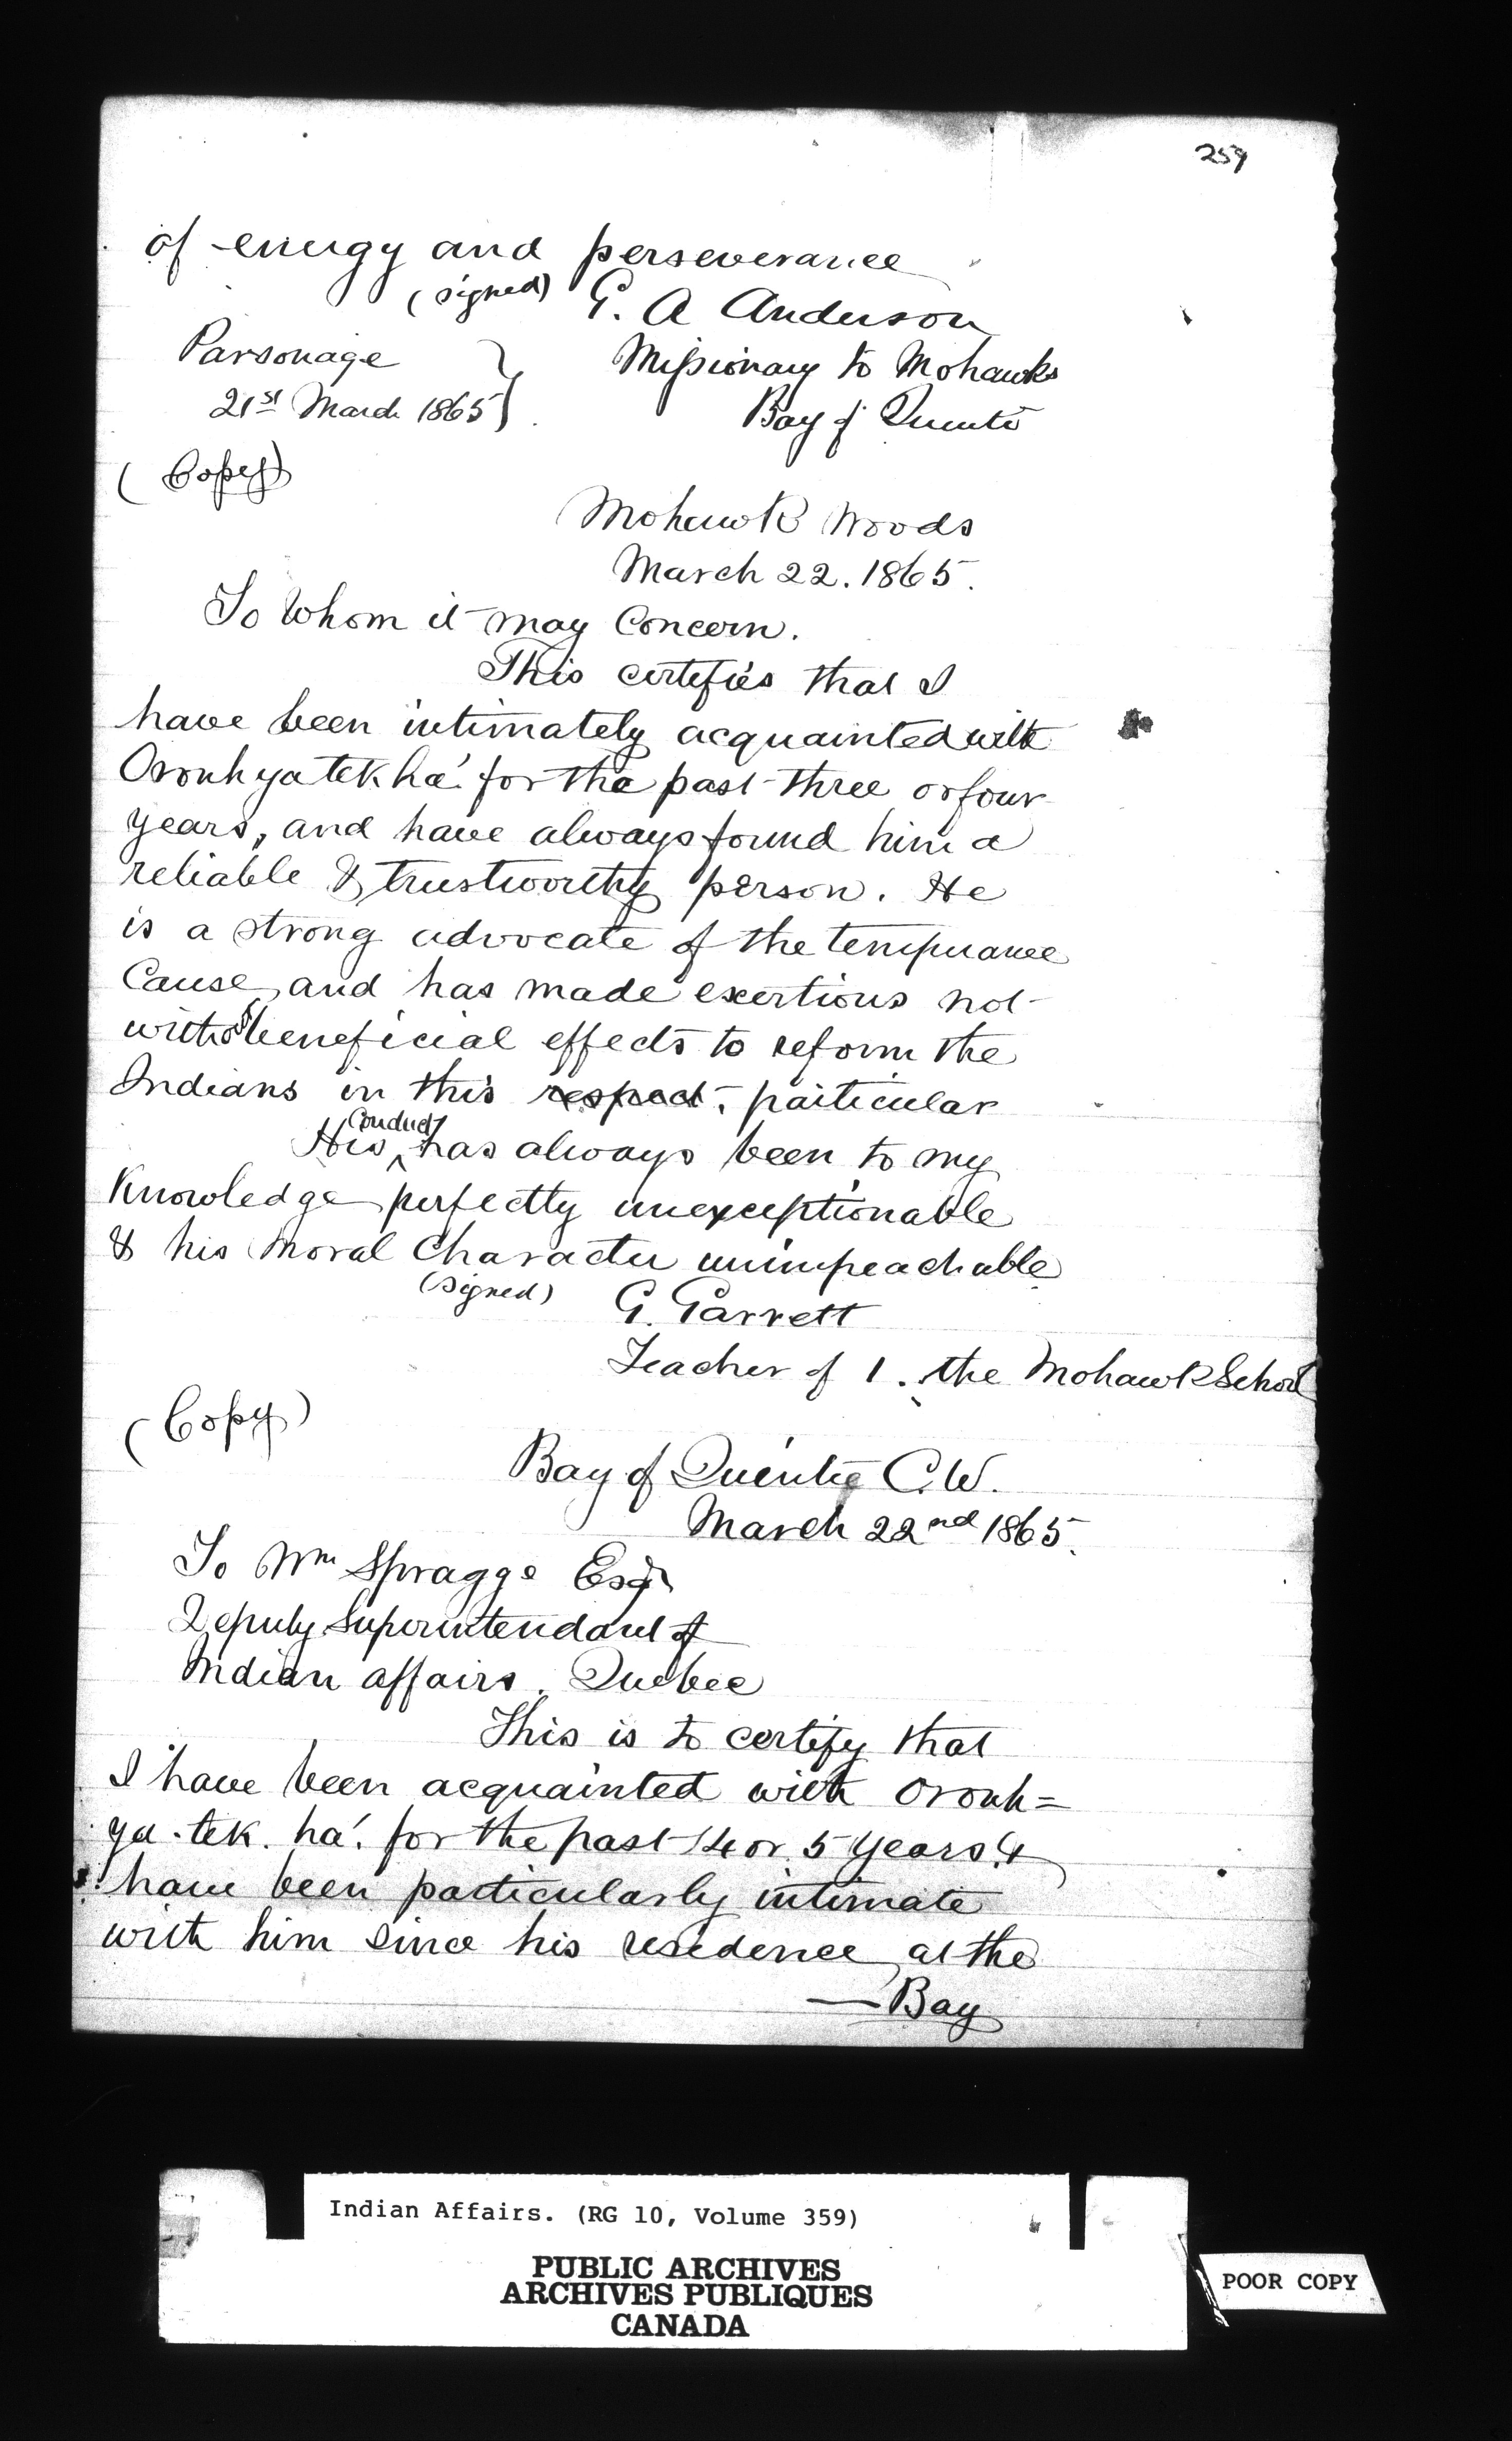 259
of energy and perseverance
(signed) G. A Anderson
Parsonage } Missionary to Mohawks
21st March 1865 } Bay of Quinté
(Copy)
Mohawk Woods
March 22. 1865.
To Whom it may Concern.
This certifies that I
have been intimately acquainted with
Oronhyatekha' for the past three or four
years, and have always found him a
reliable & trustworthy person. He
is a strong advocate of the temperance
Cause, and has made exertions not
without beneficial effects to reform the
Indians in this respect, particular
His Conduct has always been to my
Knowledge perfectly unexceptionable
& his Moral Character unimpeachable
(signed) G. Garrett
Teacher of 1. the Mohawk School
(Copy)
Bay of Quinté C.W.
March 22nd 1865.
To Wm Spragge Esqr
Deputy Superintendant of
Indian affairs. Quebec
This is to certify that
I have been acquainted with Oronh=
ya-tek. ha'. for the past 4 or 5 years &
have been particularly intimate
with him since his residence at the
—Bay
Indian Affairs. (RG 10, Volume 359)
PUBLIC ARCHIVES
ARCHIVES PUBLIQUES
CANADA
POOR COPY